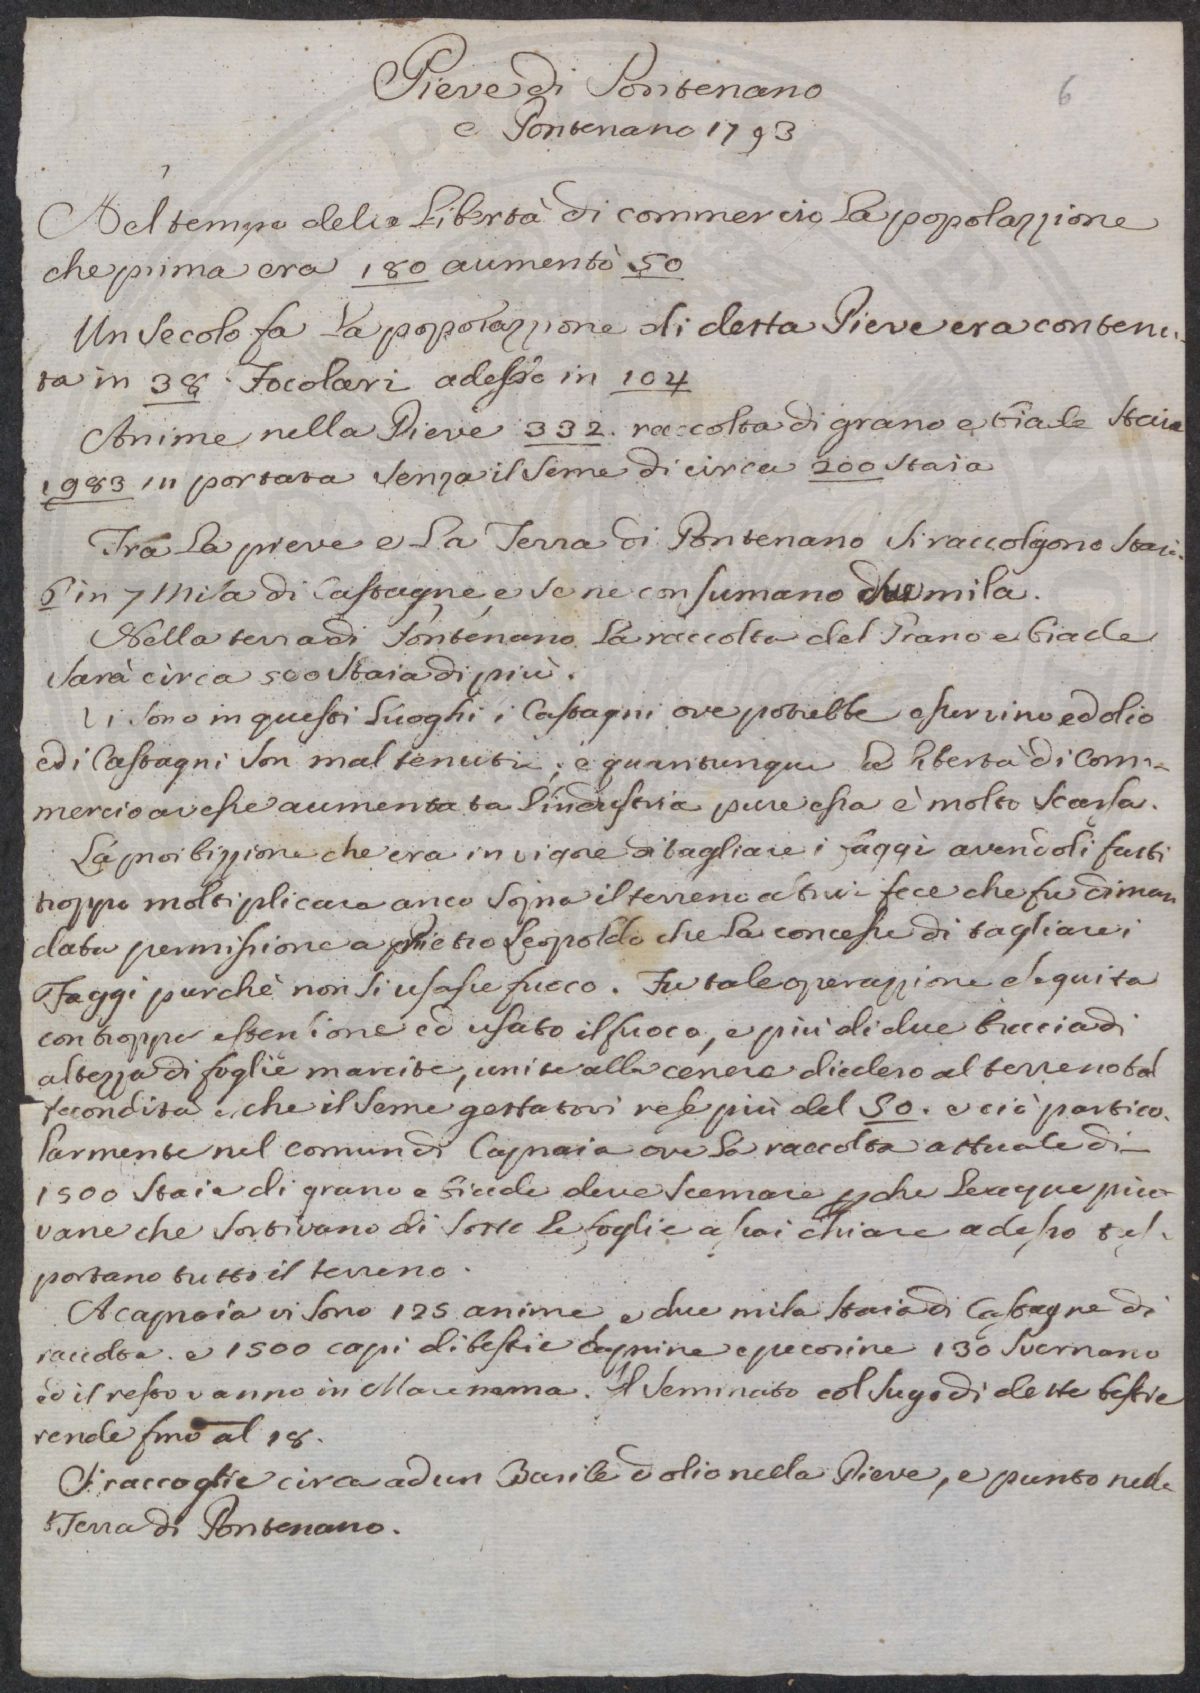 6
Pieve di Pontenano
e Pontenano 1793
Nel tempo della Libertà di commercio La popolazzione
che prima era 180 aumentò 50
Un Secolo fa La popolazzione di detta Pieve era contenu-
ta in 38 Focolari adesso in 104
Anime nella Pieve 332. raccolta di grano e biade Staia
1983 in portata Senza il Seme di circa 200 Staia
Fra La pieve e La Terra di Pontenano Si raccolgono Staia
6 in 7 Mila di Castagne e Se ne consumano due mila.
Nella terra di Pontenano La raccolta del Grano e biade
Sarà circa 500 Staia di più.
Vi Sono in questi Luoghi i Castagni ove potrebbe esser vino ed olio
ed i Castagni Son mal tenuti; e quantunque La libertà di Com-
mercio avesse aumentata L'industria pure essa è molto Scarsa.
La proibizzione che era in vigore di tagliare i faggi avendoli fatti
troppo moltiplicare anco Sopra il terreno altrui fece che fu diman
data permissione a Pietro Leopoldo che La concesse di tagliare i
Faggi purchè non Si usasse fuoco. Fu tale operazzione eseguita
con troppa estensione ed usato il fuoco, e più di due braccia di
altezza di foglie marcite, unite alla cenere diedero al terreno tal
fecondità che il Seme gettatovi rese più del 50. e ciò partico-
larmente nel comun di Capraia ove La raccolta attuale di
1500 Staia di grano e biade deve Scemare perche Le acque pio-
vane che Sortivano di Sotto Le foglie assai chiare adesso tras-
portano tutto il terreno.
A Capraia vi Sono 125 anime, e due mila Staia di Castagne di
raccolta. e 1500 capi di bestie Caprine e pecorine 130 Svernano
ed il resto vanno in Maremma. Il Seminato col Sugo di dette bestie
rende fino al 18.
Si raccoglie circa ad un Barile d'olio nella Pieve, e punto nella
Terra di Pontenano.